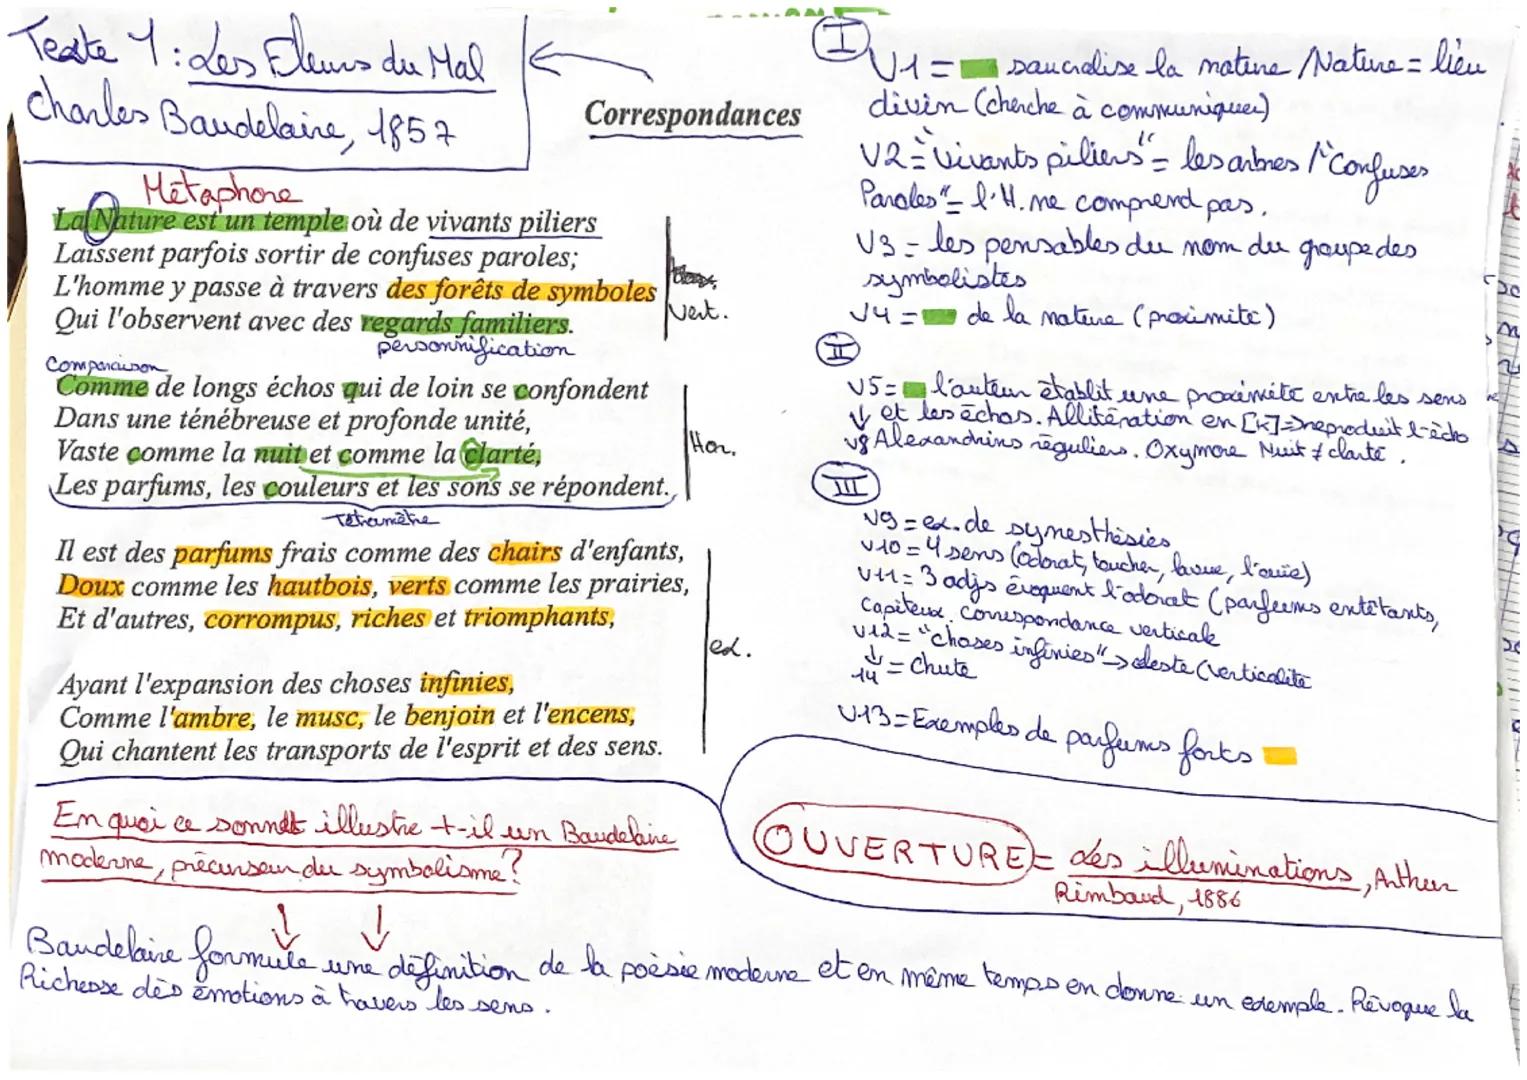 Texte 1 : Les Fleurs du Mal
Charles Baudelaire, 1857
Correspondances
Métaphore
La Nature est un temple où de vivants piliers
Laissent parfois sortir de confuses paroles;
L'homme y passe à travers des forêts de symboles
Qui l'observent avec des regards familiers.
Vert.
personnification
Comparaison
Comme de longs échos qui de loin se confondent
Dans une ténébreuse et profonde unité,
Vaste comme la nuit et comme la clarté,
Les parfums, les couleurs et les sons se répondent.
Hor.
Tétramètre
Il est des parfums frais comme des chairs d'enfants,
Doux comme les hautbois, verts comme les prairies,
Et d'autres, corrompus, riches et triomphants,
ex.
Ayant l'expansion des choses infinies,
Comme l'ambre, le musc, le benjoin et l'encens,
Qui chantent les transports de l'esprit et des sens.
En quoi ce sonnet illustre t-il un Baudelaire
moderne, précurseur du symbolisme?
I
V1 = sacralise la nature / Nature = lieu
divin (cherche à communiquer)
V2 = "vivants piliers" = les arbres / "Confuses
Paroles" = l'H. ne comprend pas.
V3 = les pensables du nom du groupe des
symbolistes
V4 = de la nature (proximité)
II
V5 = l'auteur établit une proximité entre les sens
↓ et les échos. Allitération en [K] => reproduit l'écho
V8 Alexandrins réguliers. Oxymore Nuit ≠ clarté.
III
V9 = ex. de synesthésies
V10 = 4 sens (odorat, toucher, la vue, l'ouïe)
V11 = 3 adjs évoquent l'odorat (parfums entêtants,
capiteux. Correspondance verticale
V12 = "choses infinies" → céleste (verticalité
↓
14 = Chute
V13 = Exemples de parfums forts
OUVERTURE = Les illuminations, Arthur
Rimbaud, 1886
Baudelaire formule une définition de la poésie moderne et en même temps en donne un exemple. Révoque la
Richesse dès émotions à travers les sens.